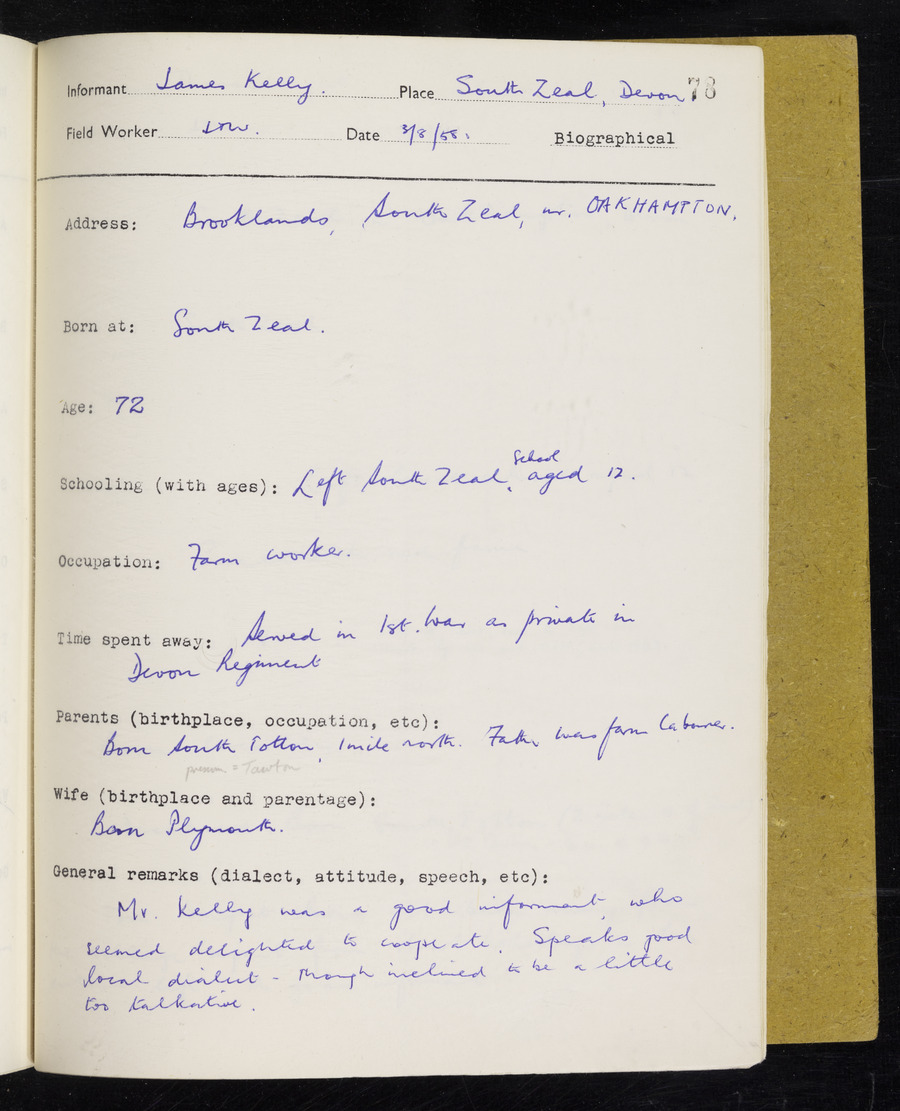 Informant James Kelly. Place South Zeal, Devon 78
Field Worker Date 3/8/58. Biographical
Address: Brooklands, South Zeal, nr. OAKHAMPTON.
Born at: South Zeal.
Age: 72
School
Schooling (with ages): Left South Zeal, aged 12.
Occupation: Farm worker.
Time spent away: Served in 1st. War as private in
Devon Regiment
Parents (birthplace, occupation, etc):
Born South Totton, 1 mile north. Father was farm labourer.
presum = Tawton
Wife (birthplace and parentage):
Born Plymouth.
General remarks (dialect, attitude, speech, etc):
Mr. Kelly was a good informant, who
seemed delighted to cooperate. Speaks good
local dialect - though inclined to be a little
too talkative.